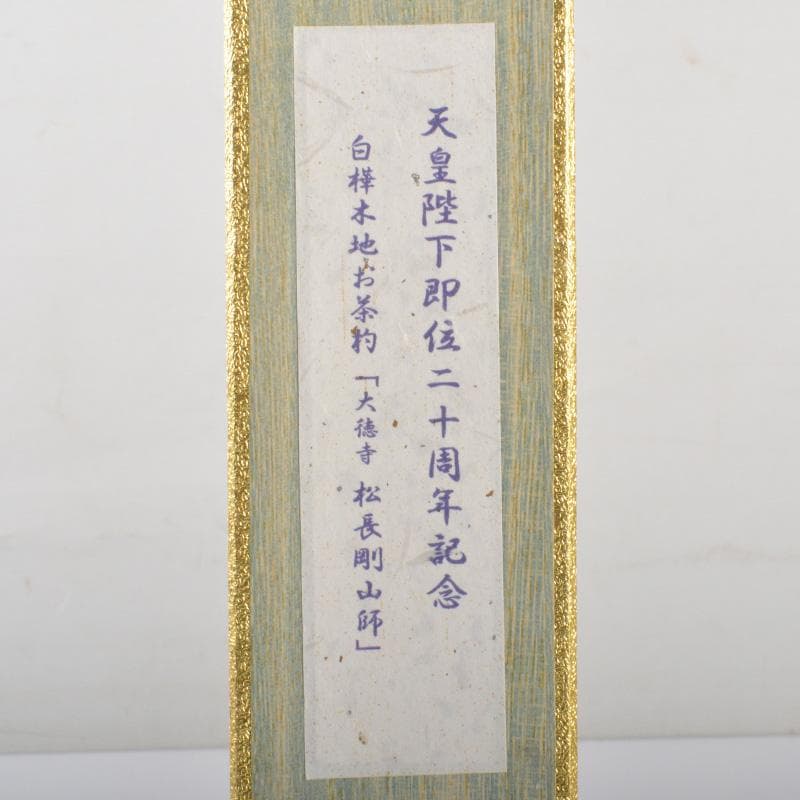 天皇陛下即位二十周年記念
白樺木地お茶杓「大徳寺 松長剛山師」